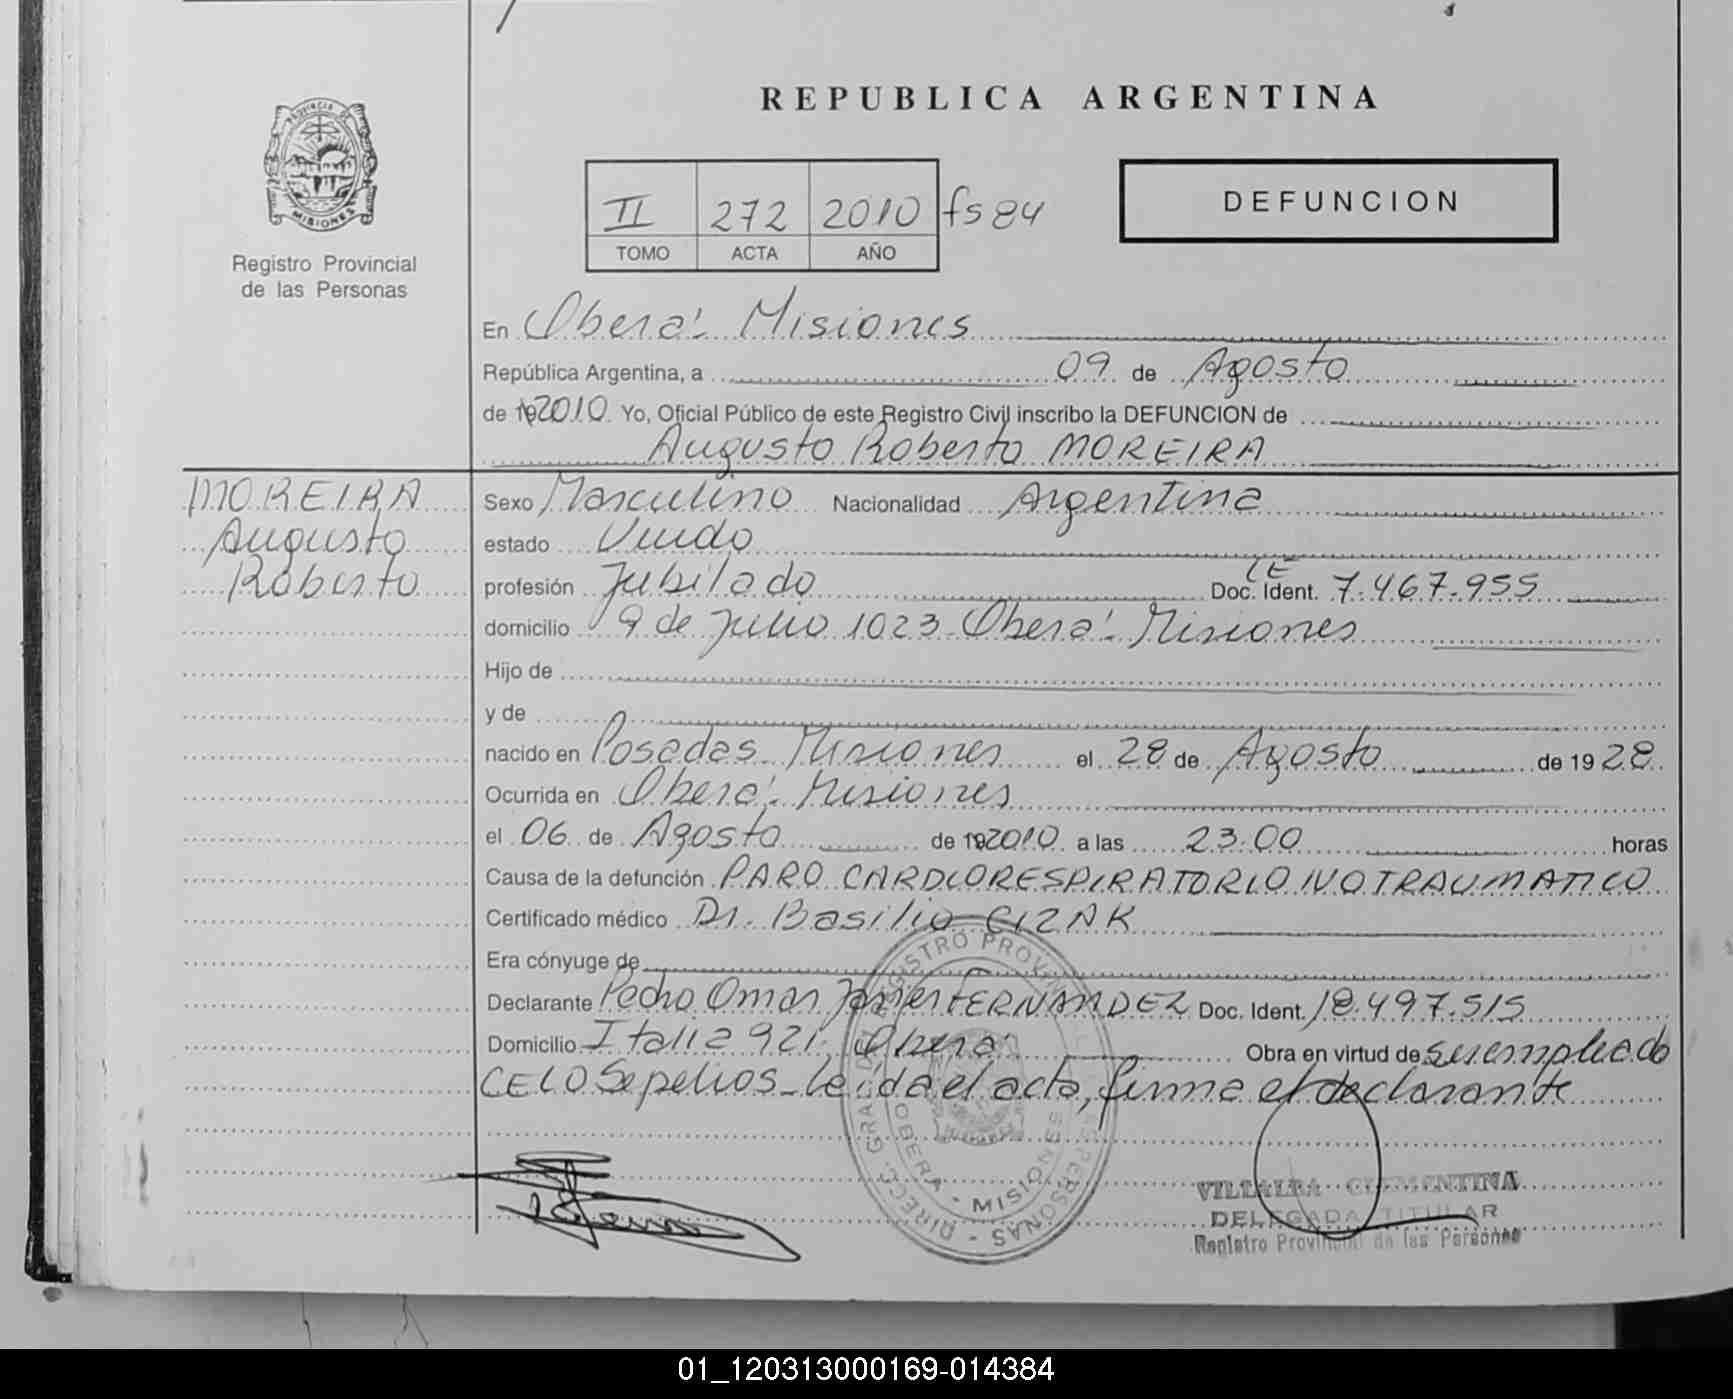 PROVINCIA DE
MISIONES
Registro Provincial
de las Personas
REPUBLICA ARGENTINA
II 272 2010 fs 84
TOMO ACTA AÑO
DEFUNCION
En Oberá: Misiones
República Argentina, a 09 de Agosto
de 192010 Yo, Oficial Público de este Registro Civil inscribo la DEFUNCION de
Augusto Roberto MOREIRA
MOREIRA
Augusto
Roberto
Sexo Masculino Nacionalidad Argentina
estado Viudo
profesión Jubilado Doc. Ident. LE 7.467.955
domicilio 9 de Julio 1023 Oberá: Misiones
Hijo de
y de
nacido en Posadas Misiones el 28 de Agosto de 1928
Ocurrida en Oberá: Misiones
el 06 de Agosto de 192010 a las 23:00 horas
Causa de la defunción PARO CARDIORESPIRATORIO NO TRAUMATICO
Certificado médico Dr. Basilio CIZAK
Era cónyuge de
Declarante Pedro Omar Javier FERNANDEZ Doc. Ident. 18.497.515
Domicilio Italia 921, Oberá: Obra en virtud de ser empleado
CELO Sepelios_Leída el acta, firma el declarante
DIRECC. GRAL. DEL REGISTRO PROVINCIAL DE LAS PERSONAS -
OBERA - MISIONES
VILLALBA CLEMENTINA
DELEGADA TITULAR
Registro Provincial de las Personas
01_120313000169-014384